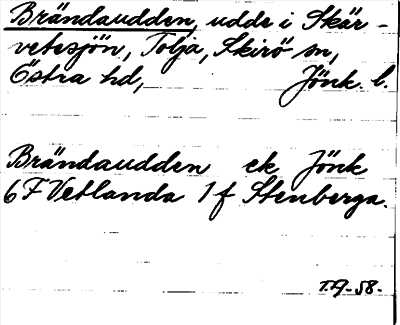 Brändaudden, udde i Skär-
vetesjön, Tolja, Skirö sn,
Östra hd, Jönk. l.
Brändaudden ek Jönk
6F Vetlanda 1f Stenberga.